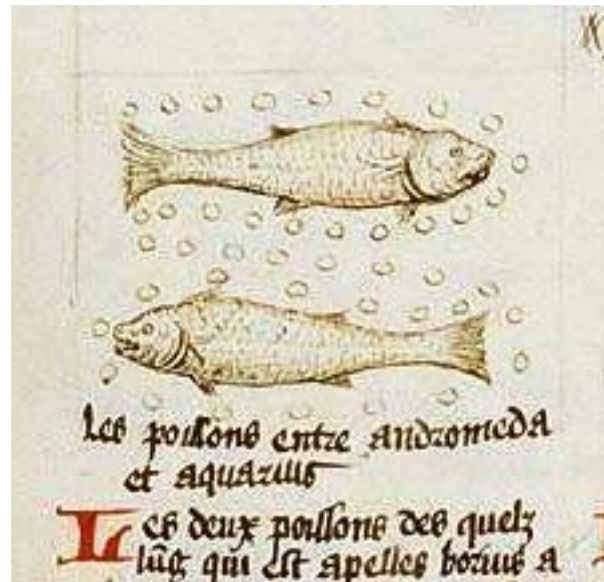 Les poissons entre andromeda
et aquarius
Les deux poissons des quelz
lũg qui est apelles borius a